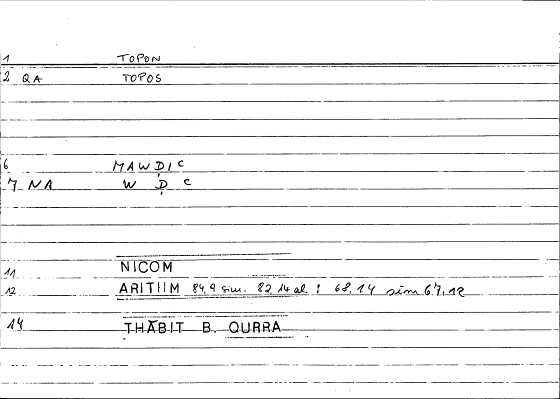 1 TOPON
2 QA TOPOS
6 MAWḌI C
7 NA W Ḍ C
11 NICOM
12 ARITHM 84,9 sim. 82,14 al : 68,14 sim 67,12
14 THĀBIT B. QURRA